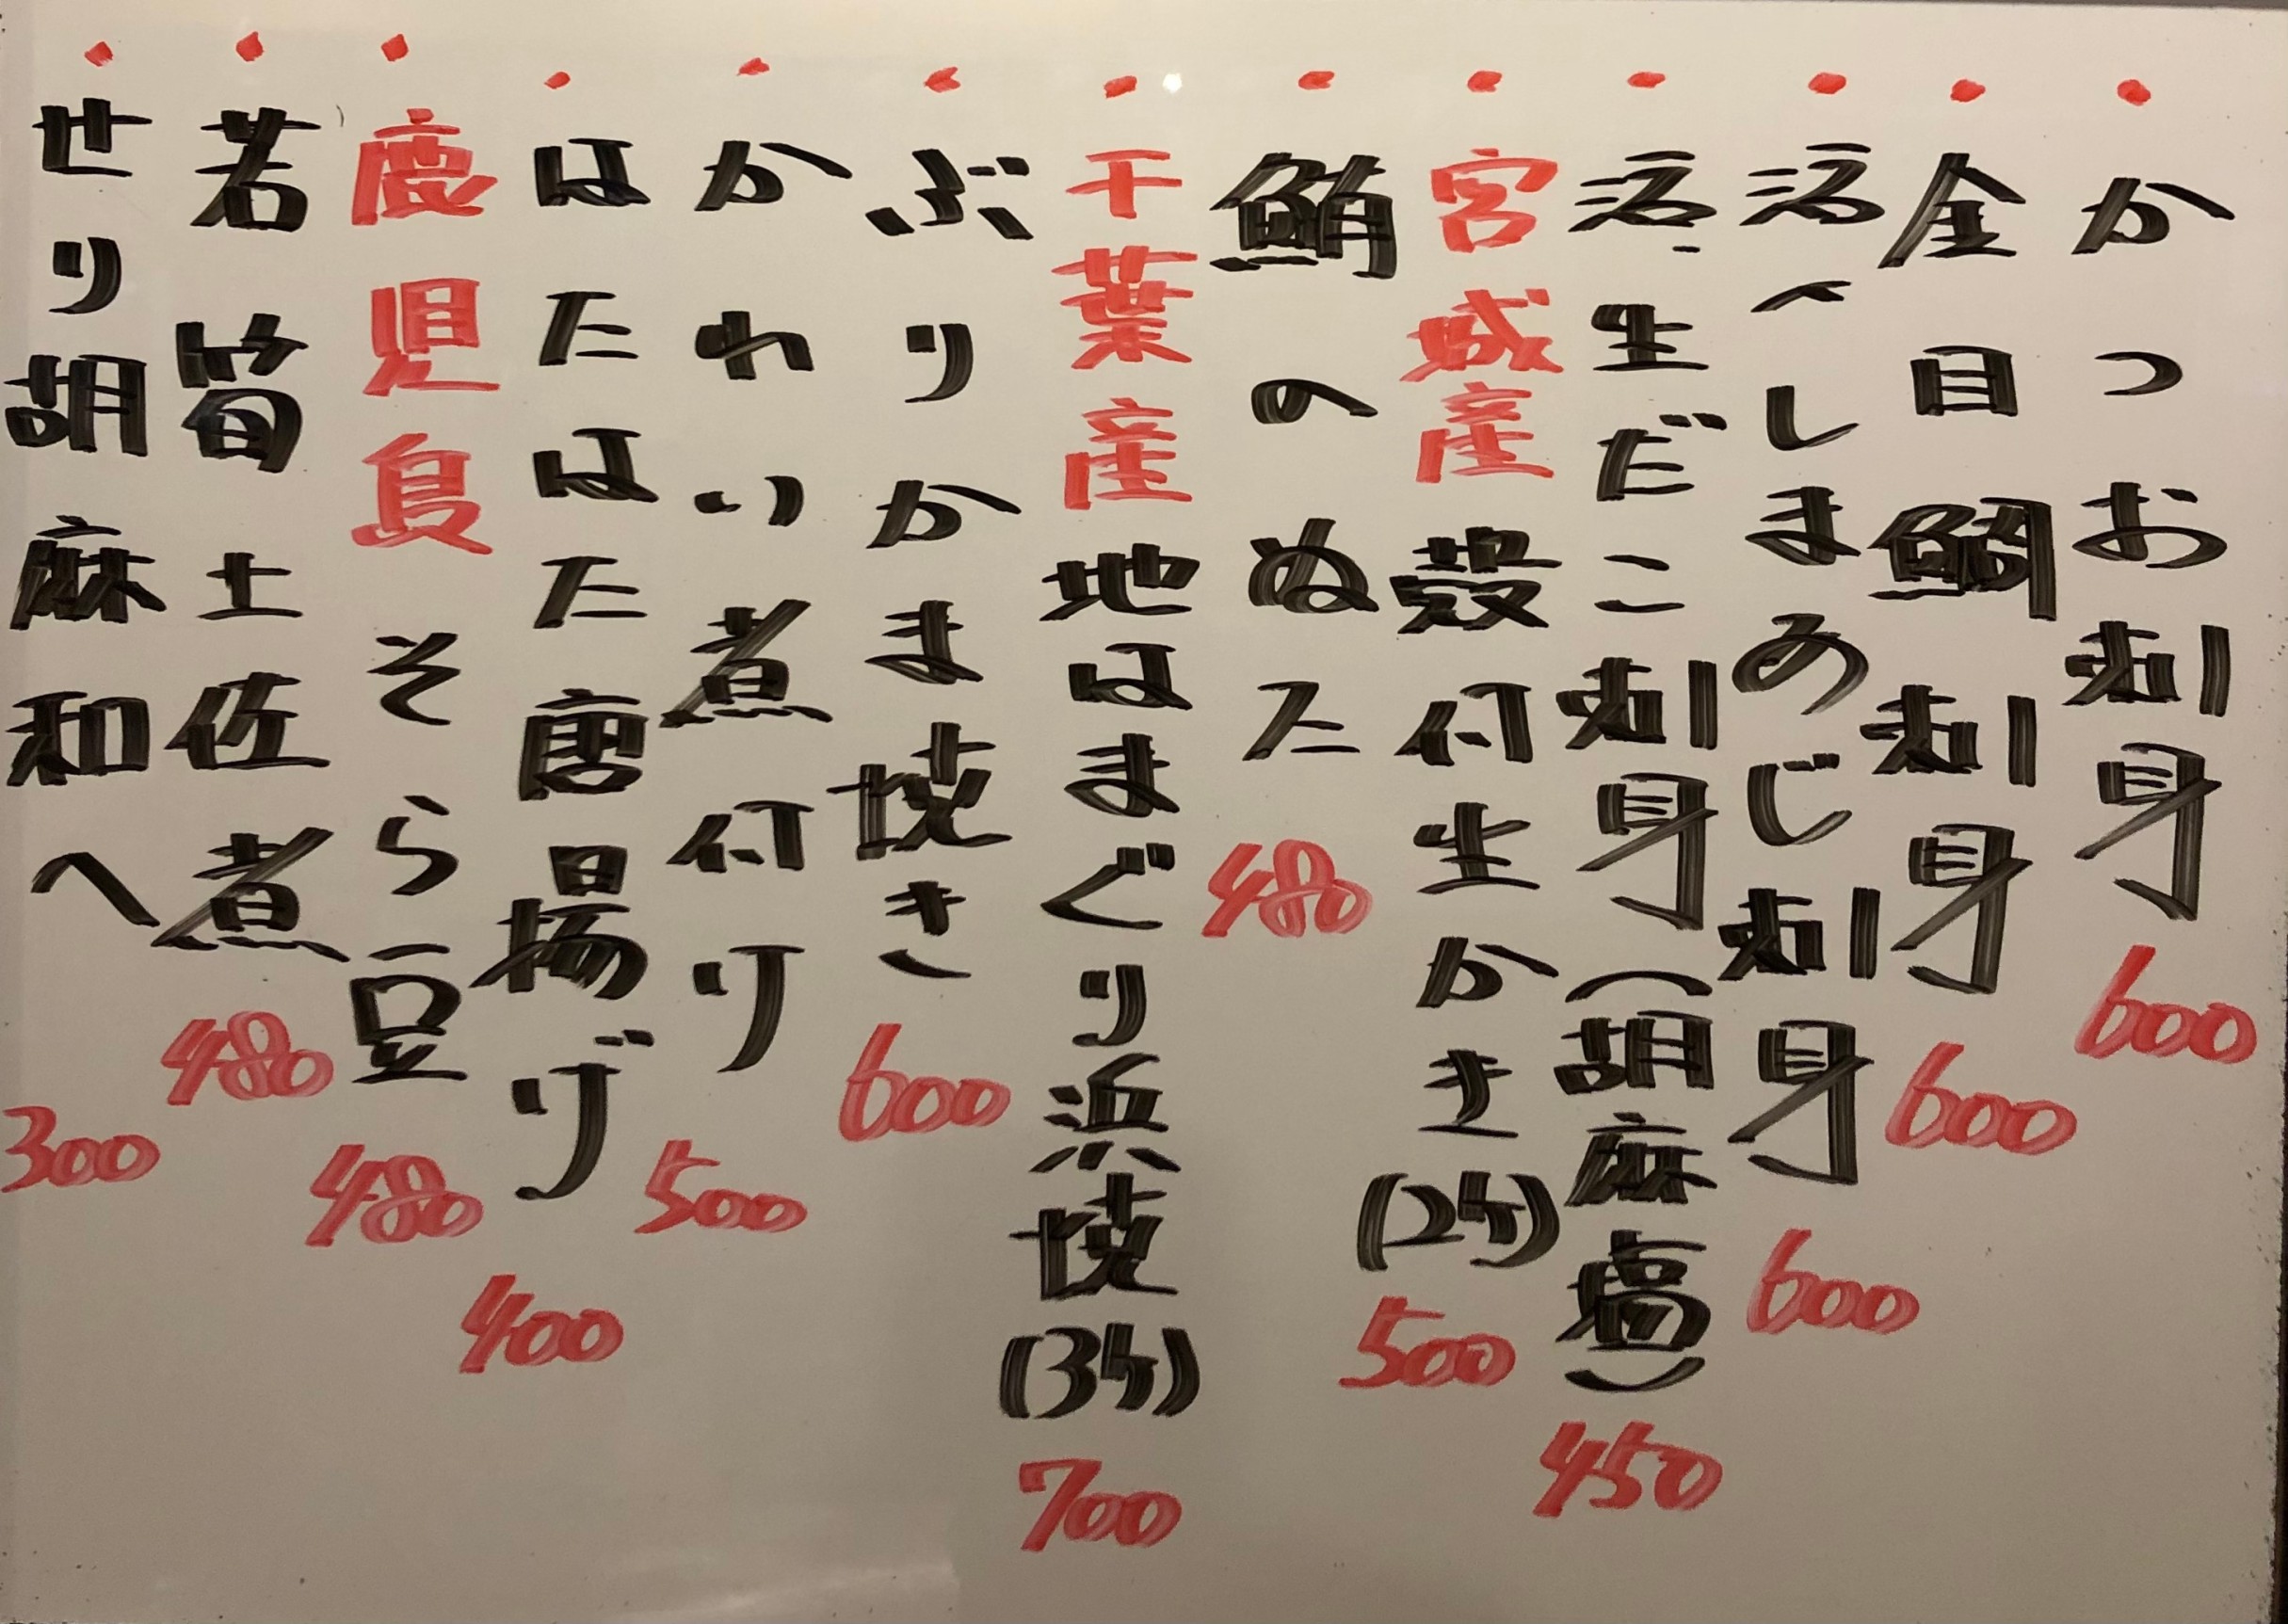 ・かつお刺身 600
・金目鯛刺身 600
・活〆しまあじ刺身 600
・活生だこ刺身(胡麻塩) 450
・宮城産殻付生かき(2ケ) 500
・鮪のぬた 480
・千葉産地はまぐり浜焼(3ケ) 700
・ぶりかま焼き 600
・かれい煮付け 500
・はたはた唐揚げ 400
・鹿児島そら豆 480
・若筍土佐煮 480
・せり胡麻和へ 300